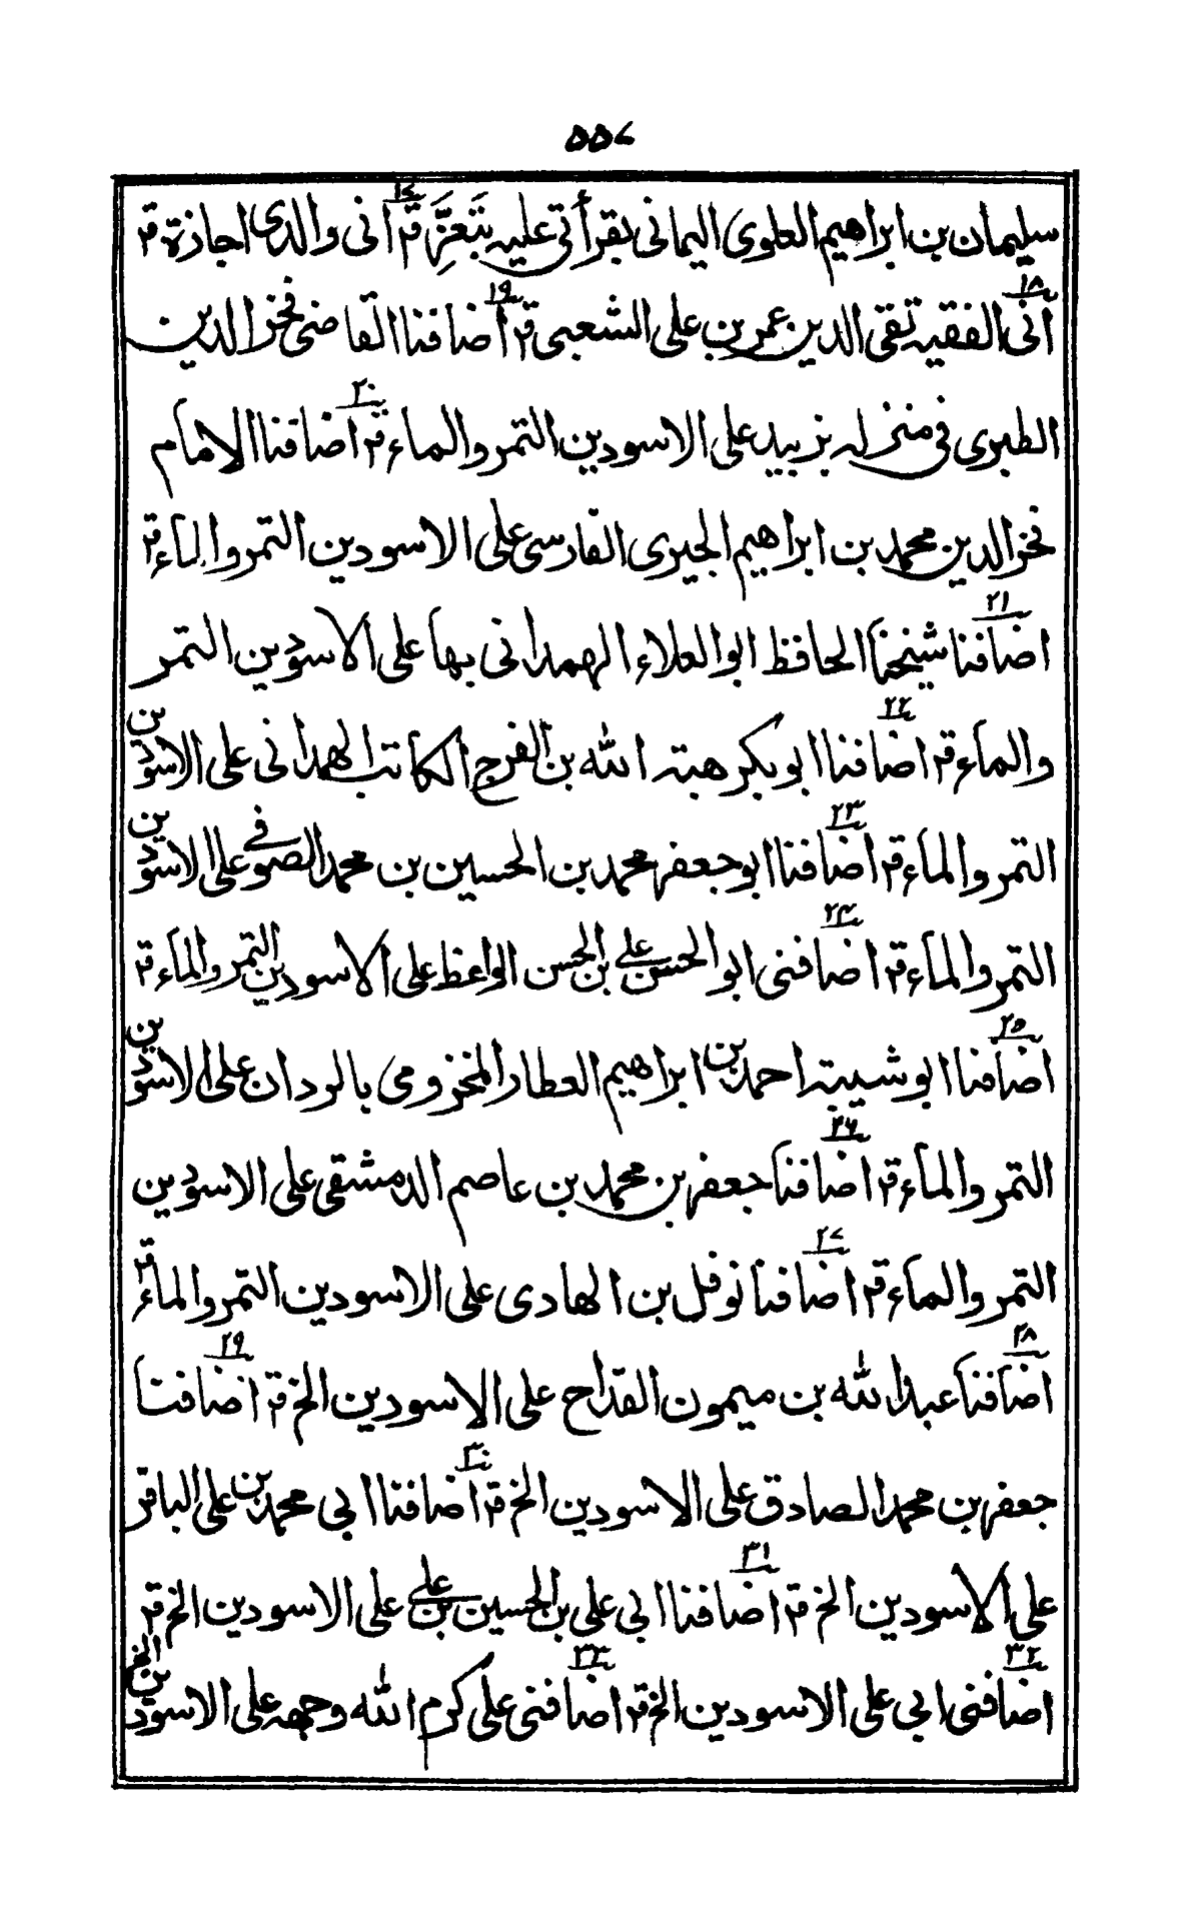 ۵۵۷
سلیمان بن ابراهیم العلوی الیمانی بقرأتی علیه بتَعِزَّ قم ۱۷ انی والدی اجازة قم
۱۸ انی الفقیه تقی الدین عمر بن علی الشعبی قم ۱۹ اضافنا القاضی فخر الدین
الطبری فی منزله بزبید علی الاسودین التمر والماء قم ۲۰ اضافنا الامام
فخر الدین محمد بن ابراهیم الجیری الفارسی علی الاسودین التمر والماء قم
۲۱ اضافنا شیخنا الحافظ ابو العلاء الهمدانی بها علی الاسودین التمر
والماء قم ۲۲ اضافنا ابو بکر هبة الله بن الفرج الکاتب الهمدانی علی الاسودین
التمر والماء قم ۲۳ اضافنا ابو جعفر محمد بن الحسین بن محمد الصوفی علی الاسودین
التمر والماء قم ۲۴ اضافنی ابو الحسن علی بن الحسن الواعظ علی الاسودین التمر والماء قم
۲۵ اضافنا ابو شیبة احمد بن ابراهیم العطار المخزومی بالردان علی الاسودین
التمر والماء قم ۲۶ اضافنا جعفر بن محمد بن عاصم الدمشقی علی الاسودین
التمر والماء قم ۲۷ اضافنا نوفل بن الهادی علی الاسودین التمر والماء قم
۲۸ اضافنا عبد الله بن میمون القداح علی الاسودین الخ قم ۲۹ اضافنا
جعفر بن محمد الصادق علی الاسودین الخ قم ۳۰ اضافنا ابی محمد بن علی الباقر
علی الاسودین الخ قم ۳۱ اضافنا ابی علی بن الحسین بن علی علی الاسودین الخ قم
۳۲ اضافنی ابی علی الاسودین الخ قم ۳۳ اضافنی علی کرم الله وجهه علی الاسودین الخ